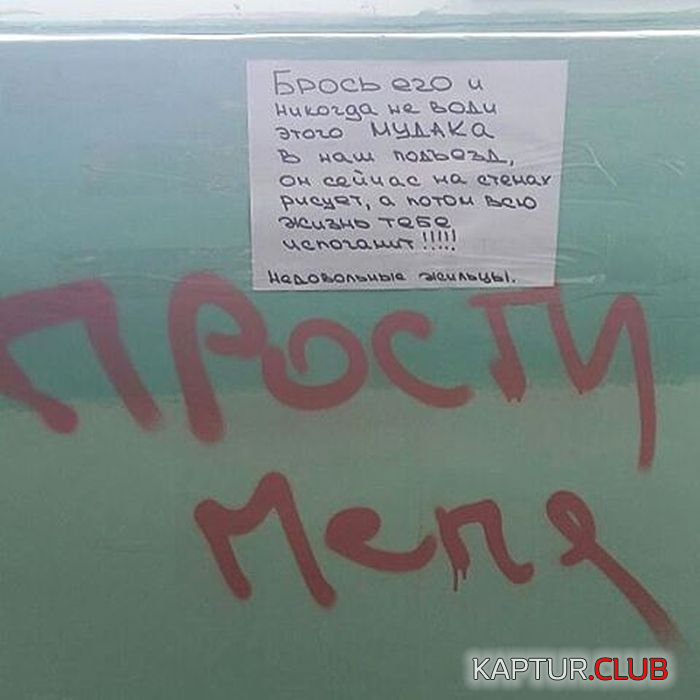 Брось его и
никогда не води
этого МУДАКА
в наш подъезд,
он сейчас на стенах
рисует, а потом всю
жизнь тебе
испоганит!!!!!
Недовольные жильцы.
ПРОСТИ
меня
KAPTUR.CLUB